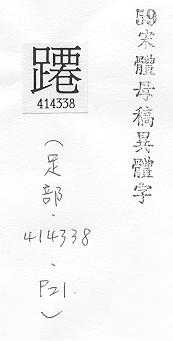 59宋體母稿異體字
蹮
414338
(足部.414338.P21.)